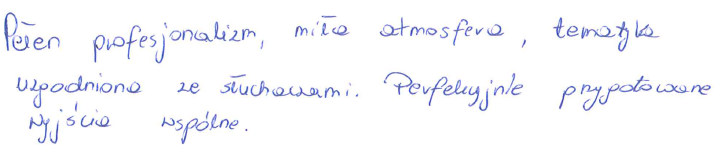 Pełen profesjonalizm, miła atmosfera, tematyka
uzgodniona ze słuchaczami. Perfekcyjnie przygotowane
wyjścia wspólne.